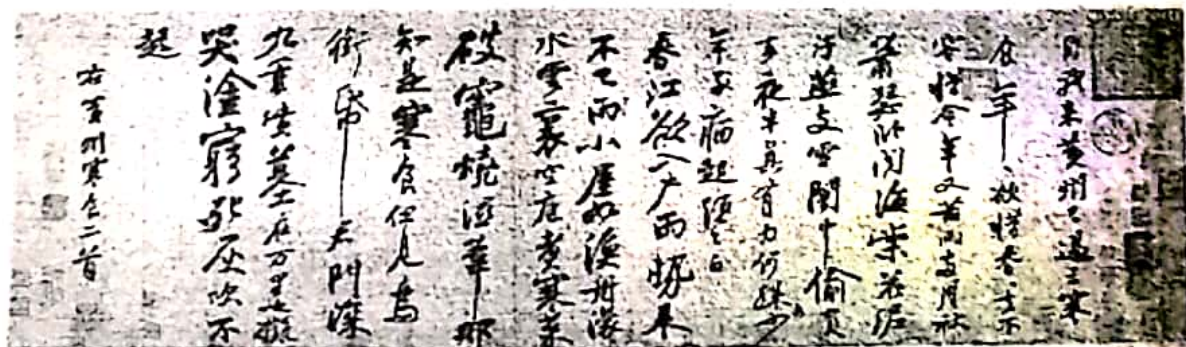 自我來黃州已過三寒
食年〻欲惜春〻去不
容惜今年又苦雨兩月秋
蕭瑟卧聞海棠花泥
污燕支雪闇中偷負
去夜半真有力何殊少
年子病起頭已白
春江欲入戶雨勢來
不已雨小屋如漁舟濛〻
水雲裏空庖煮寒菜
破竈燒濕葦那
知是寒食但見烏
銜帋君門深
九重墳墓在万里也擬
哭塗窮死灰吹不
起
右黃州寒食二首